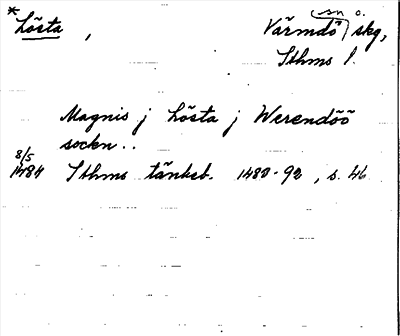 *Lösta, Värmdö sn o. skg,
Sthms l.
Magnis j Lösta j Werendöö
sockn..
8/5
1484 Sthms tänkeb. 1483-92, s. 46